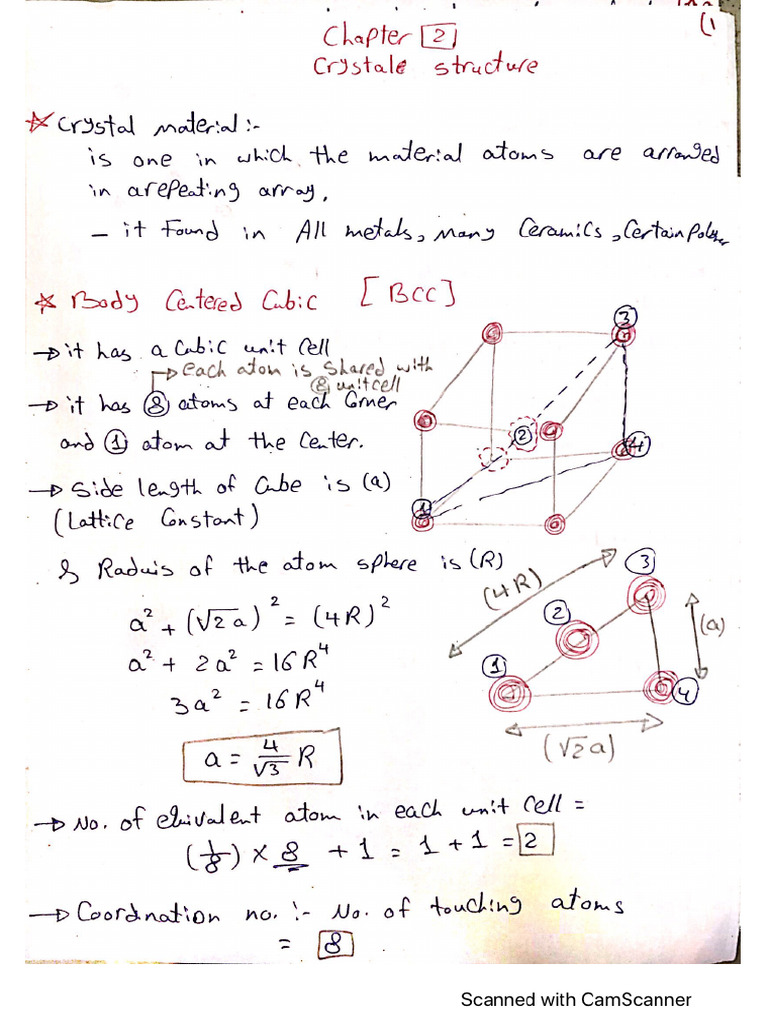 (1
Chapter 2
Crystale structure
* Crystal material :-
is one in which the material atoms are arranged
in arepeating array,
- it Found in All metals, many Ceramics, Certain
* Body Centered Cubic [BCC]
→ it has a Cubic unit Cell
→ each atom is shared with
8 unit cell
→ it has 8 atoms at each Corner
and 1 atom at the Center.
→ Side length of Cube is (a)
(Lattice Constant)
& Raduis of the atom sphere is (R)
3
2
4
1
a² + (√2 a)² = (4R)²
a² + 2a² = 16R⁴
3a² = 16R⁴
a = 4/√3 R
(4R)
3
2
(a)
1
4
(√2 a)
→ No. of equivalent atom in each unit cell =
(1/8) × 8 + 1 = 1 + 1 = 2
→ Coordnation no. :- No. of touching atoms
= 8
Scanned with CamScanner